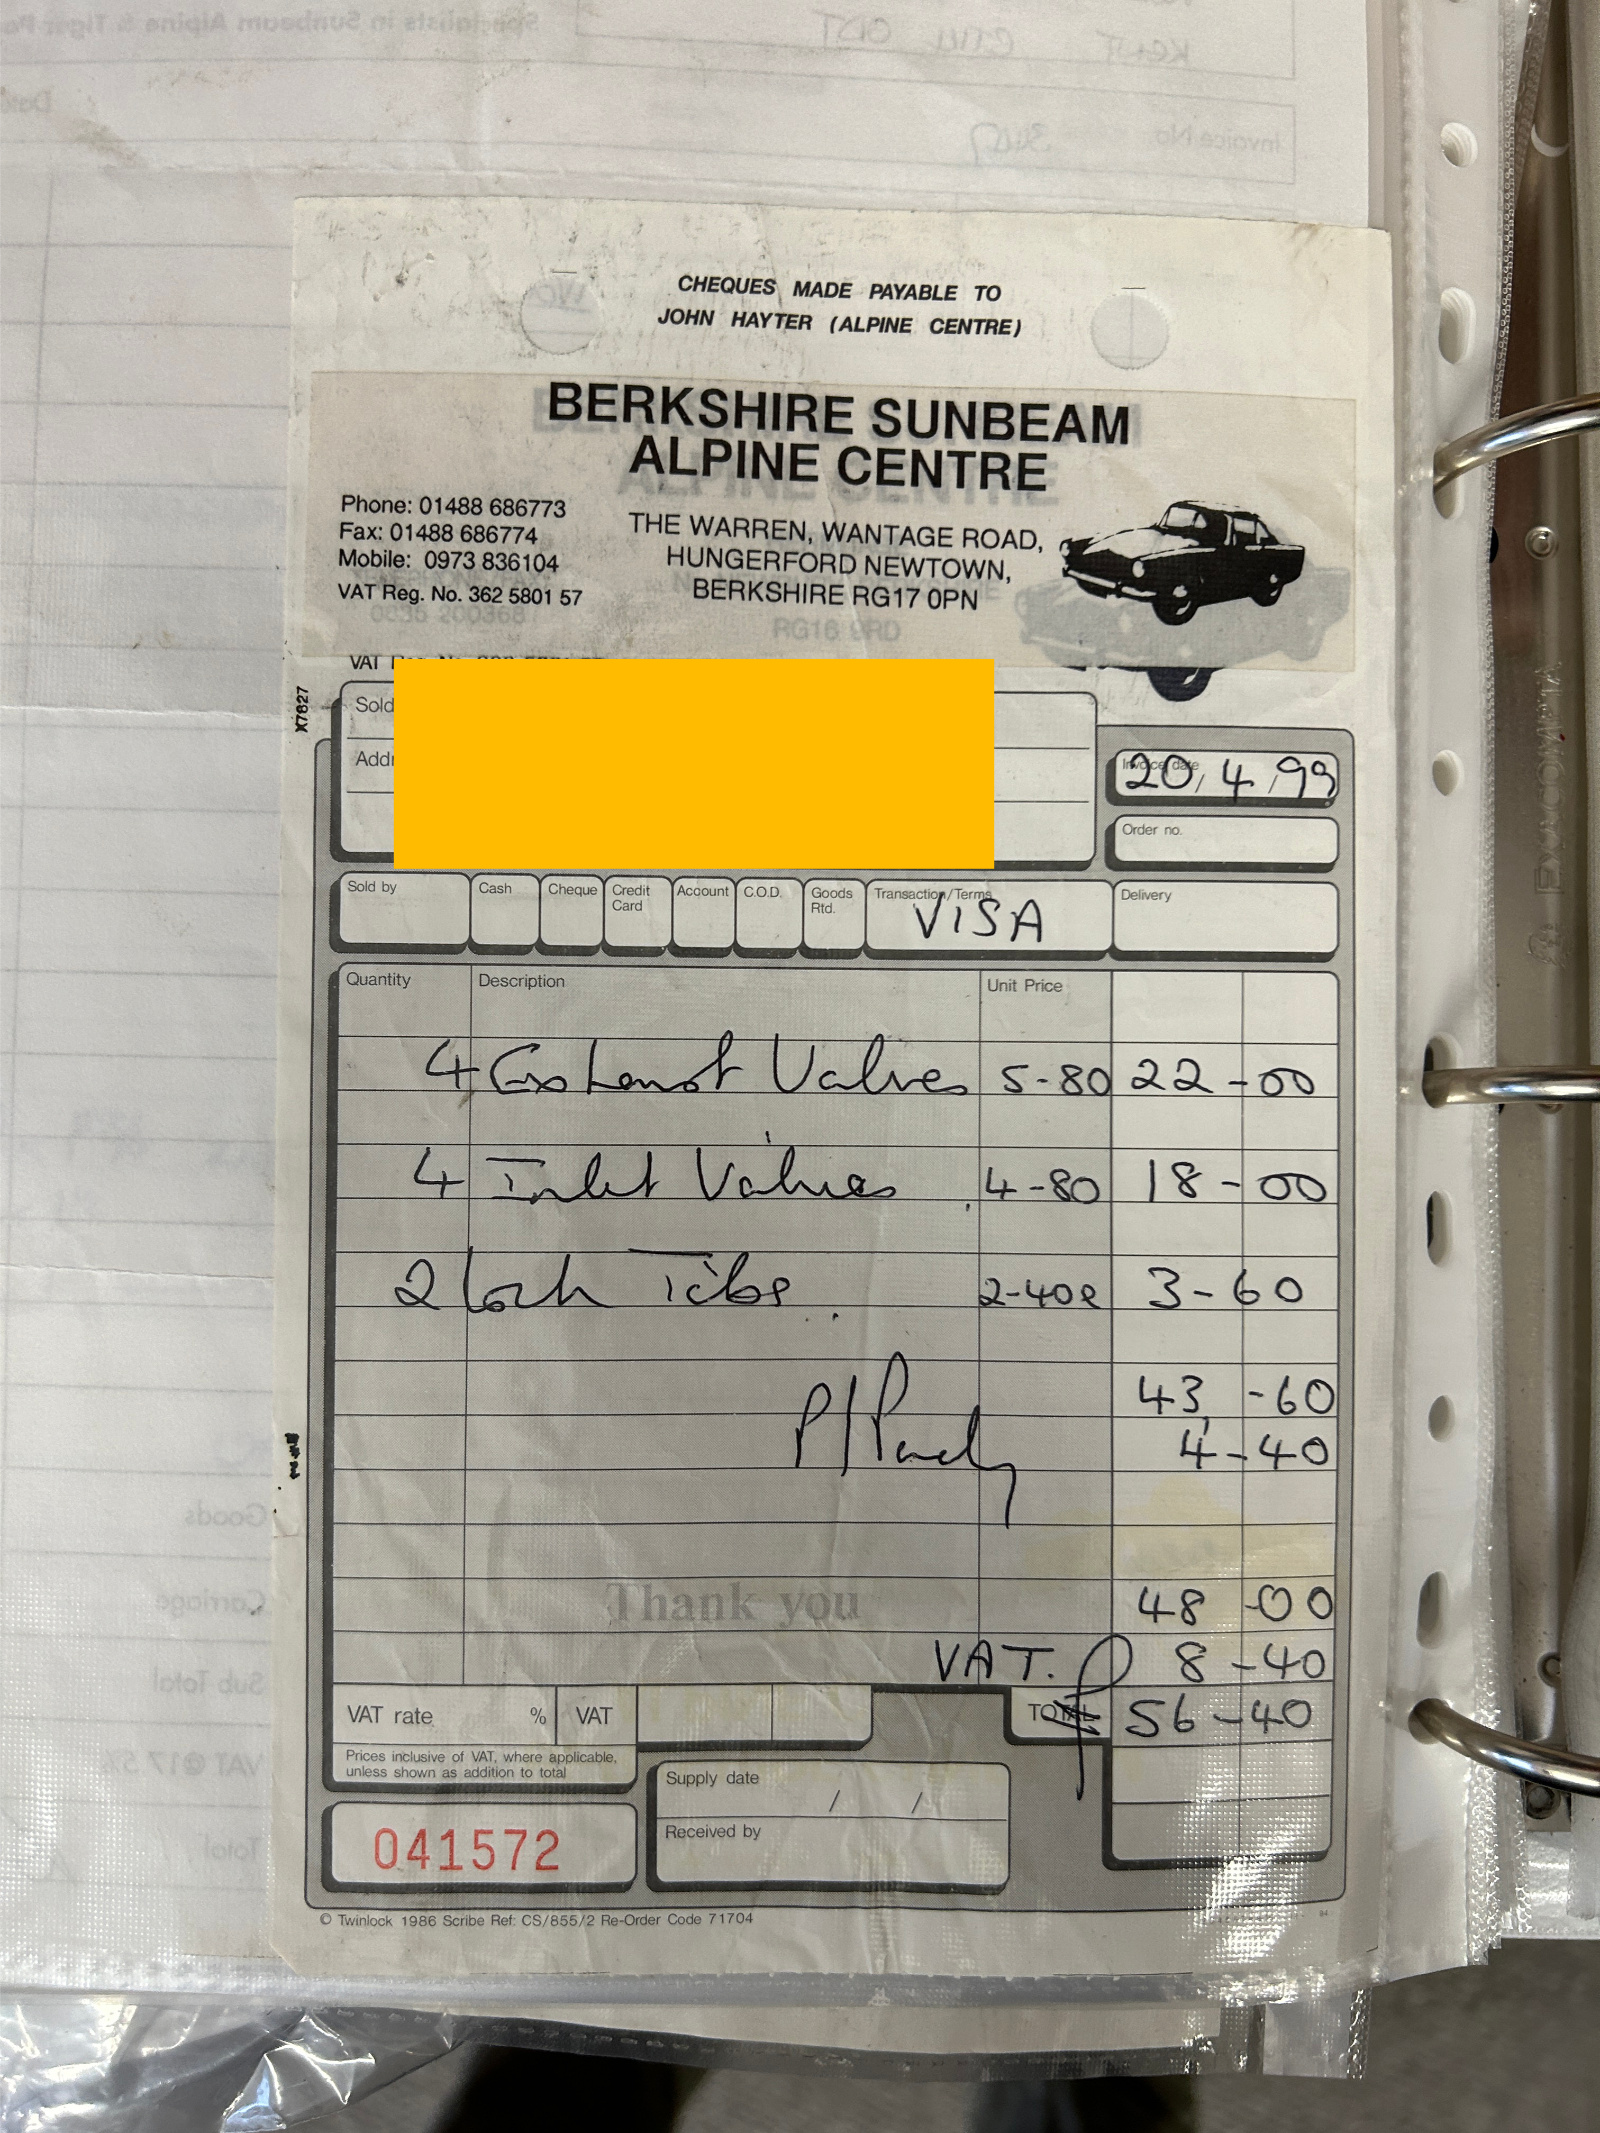 CHEQUES MADE PAYABLE TO
JOHN HAYTER (ALPINE CENTRE)
BERKSHIRE SUNBEAM
ALPINE CENTRE
Phone: 01488 686773
Fax: 01488 686774
Mobile: 0973 836104
VAT Reg. No. 362 5801 57
THE WARREN, WANTAGE ROAD,
HUNGERFORD NEWTOWN,
BERKSHIRE RG17 0PN
RG16 9RD
VAT
X7627
Sold
Addr
Invoice date
20/4/99
Order no.
Sold by Cash Cheque Credit Card Account C.O.D. Goods Rtd. Transaction/Terms Delivery
VISA
Quantity Description Unit Price
4 Exhaust Valves 5-80 22-00
4 Inlet Valves 4-80 18-00
2 2-40 3-60
43-60
P/Pack 4-40
Thank you 48-00
VAT. 8-40
VAT rate % VAT TOTAL 56-40
Prices inclusive of VAT, where applicable,
unless shown as addition to total
Supply date / /
Received by
041572
© Twinlock 1986 Scribe Ref: CS/855/2 Re-Order Code 71704
Specialists in Sunbeam Alpine & Tiger
KENT
Invoice No.
Date
Goods
Carriage
Sub Total
VAT @ 17.5%
Total
EXACOMPTA